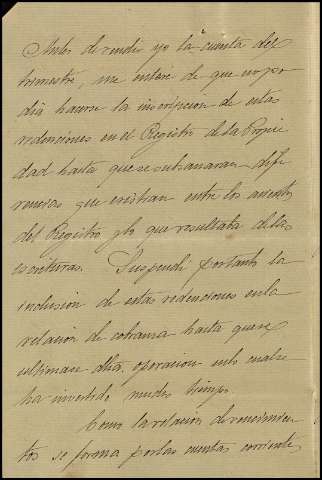 Antes de rendir yo la cuenta del
trimestre, me enteré de que no po-
dia hacerse la inscripcion de estas
redenciones en el Registro de la Propie
dad hasta que se subsanaran dife
rencias que existian entre los asientos
del Registro y lo que resultaba de las
escrituras. Suspendí por tanto la
inclusion de estas redenciones en la
relacion de cobranza hasta que se
ultimase dha. operacion en lo cual se
ha invertido mucho tiempo.
Como la relacion de vencimien-
tos se forma por las cuentas corrientes